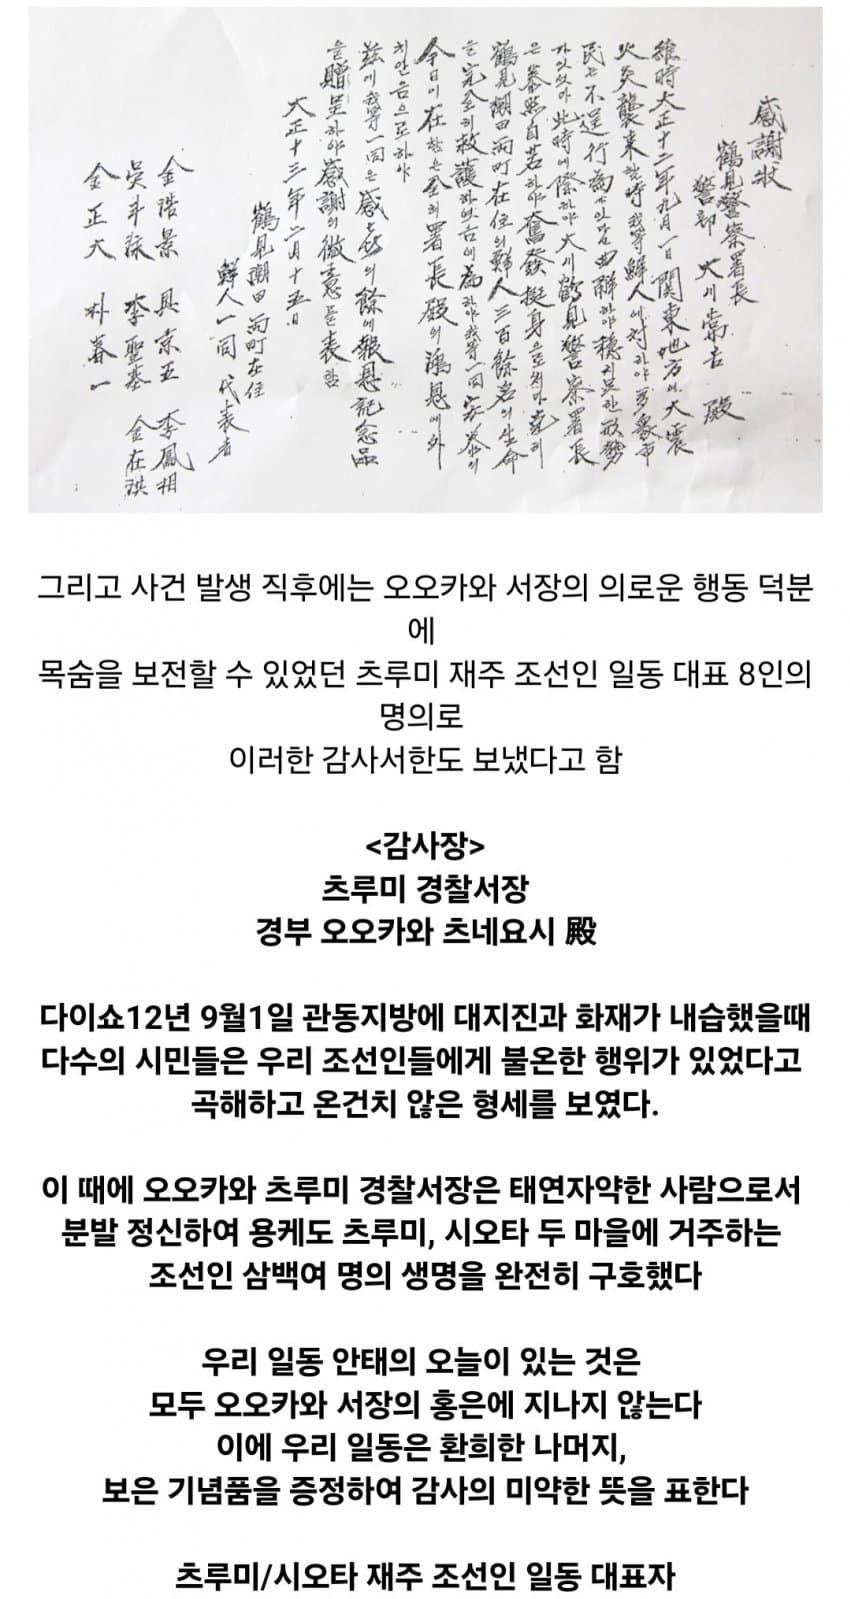 感謝狀
鶴見警察署長
警部 大川常吉 殿
維時大正十二年九月一日 関東地方에 大震
火炎襲来할時 我等鮮人에対하야 多衆市
民은 不逞行為 曲解하야 穩치못한 形勢
가잇섯다 此時에際하야 大川鶴見警察署長
은 泰然自若하야 奮發挺身으로써 克히
鶴見潮田両町在住의 鮮人三百餘名의生命
을完全히救護하엿슴에為하야 我等一同安泰의
今日이在함은 全히署長殿의鴻恩에
치안음으로하야
玆에我等一同은 感喜의餘에報恩記念品
을贈呈하야 感謝의微意를表함
大正十三年二月十五日
鶴見潮田両町在住
鮮人一同代表者
金浩景 具京五 李鳳相
吳斗泳 李聖基 金在洪
金正大 朴春一
그리고 사건 발생 직후에는 오오카와 서장의 의로운 행동 덕분
에
목숨을 보전할 수 있었던 츠루미 재주 조선인 일동 대표 8인의
명의로
이러한 감사서한도 보냈다고 함
<감사장>
츠루미 경찰서장
경부 오오카와 츠네요시 殿
다이쇼12년 9월1일 관동지방에 대지진과 화재가 내습했을때
다수의 시민들은 우리 조선인들에게 불온한 행위가 있었다고
곡해하고 온건치 않은 형세를 보였다.
이 때에 오오카와 츠루미 경찰서장은 태연자약한 사람으로서
분발 정신하여 용케도 츠루미, 시오타 두 마을에 거주하는
조선인 삼백여 명의 생명을 완전히 구호했다
우리 일동 안태의 오늘이 있는 것은
모두 오오카와 서장의 홍은에 지나지 않는다
이에 우리 일동은 환희한 나머지,
보은 기념품을 증정하여 감사의 미약한 뜻을 표한다
츠루미/시오타 재주 조선인 일동 대표자